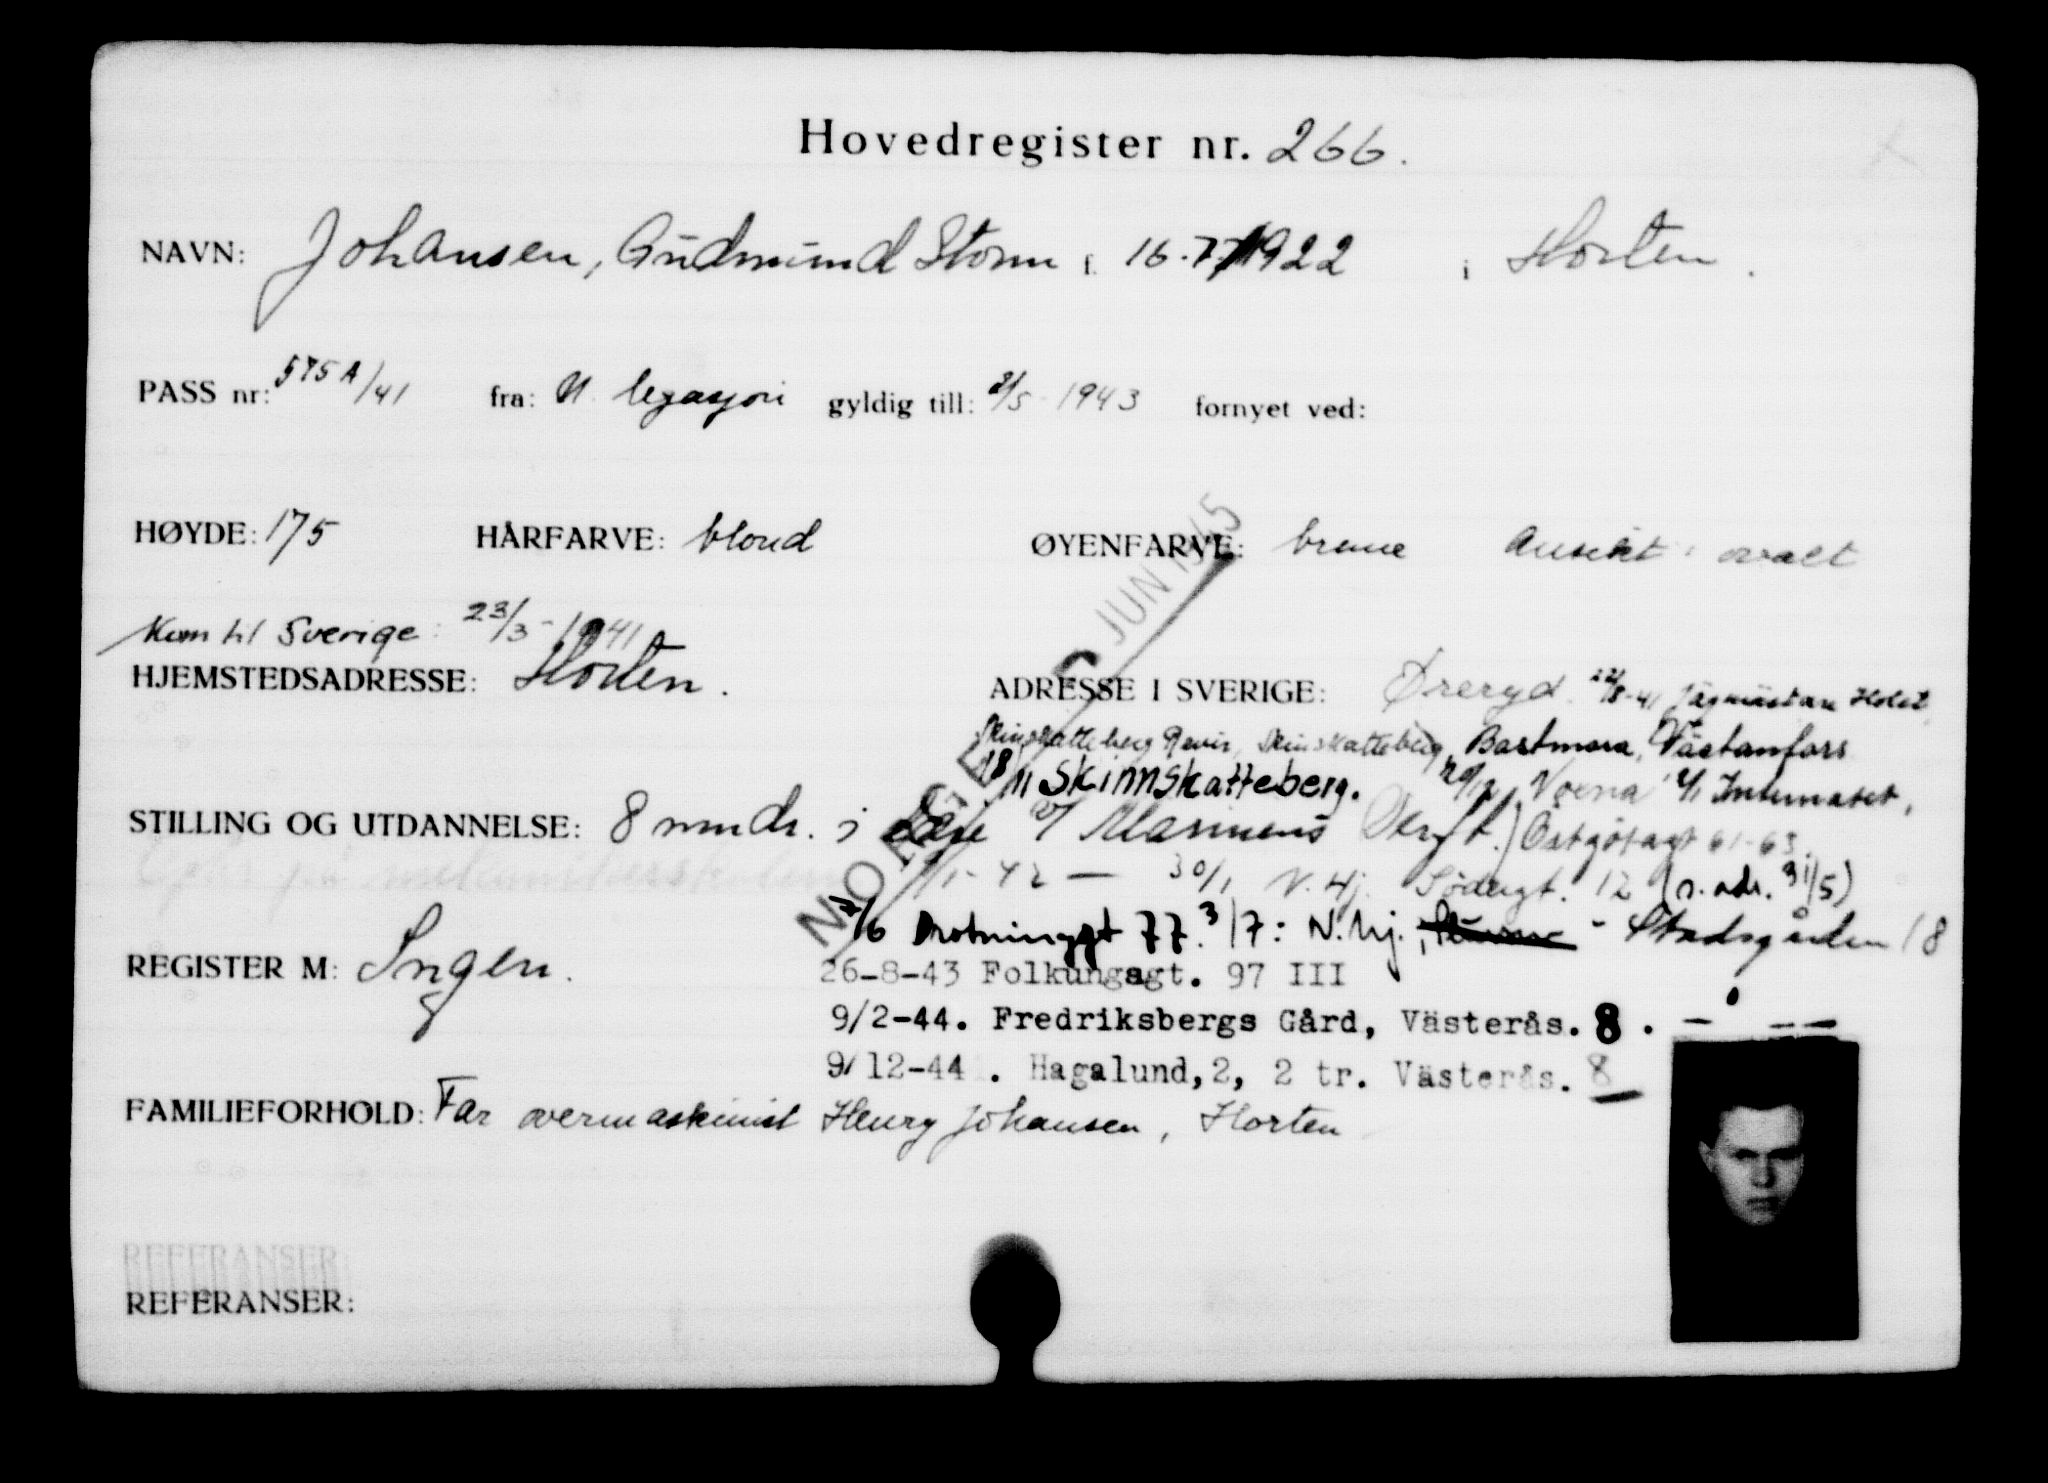 Hovedregister nr. 266.
NAVN: Johansen, Gudmund Storm f. 16.7.1922 i Horten.
PASS nr: 575A/41 fra: N. legasjon gyldig till: 2/5-1943 fornyet ved:
HØYDE: 175 HÅRFARVE: blond ØYENFARVE: brune Ansikt: ovalt
Kom til Sverige: 23/3-1941
HJEMSTEDSADRESSE: Horten. ADRESSE I SVERIGE: Øreryd 22/8-41 Jägmästare Holst
Skinskatteberg Revir, Skinskatteberg, Bastmora, Västanfors
18/11 Skinnskatteberg. 20/12 Voxna 2/1 Internatet,
STILLING OG UTDANNELSE: 8 mndr. i lære v/ Marinens Verft. Östgötagt 61-63.
1-42 — 30/1 N. Hj. Södergt. 12 (n. adr. 31/5)
2/6 Drotninggt 77. 3/7: N. Hj. - Stadsgården 18
REGISTER M: Ingen. 26-8-43 Folkungagt. 97 III
9/2-44. Fredriksbergs Gård, Västerås. 8. — — —
9/12-44. Hagalund, 2, 2 tr. Västerås. 8
FAMILIEFORHOLD: Far overmaskinist Henry Johansen, Horten
REFERANSER:
REFERANSER:
NORGE JUN 1945